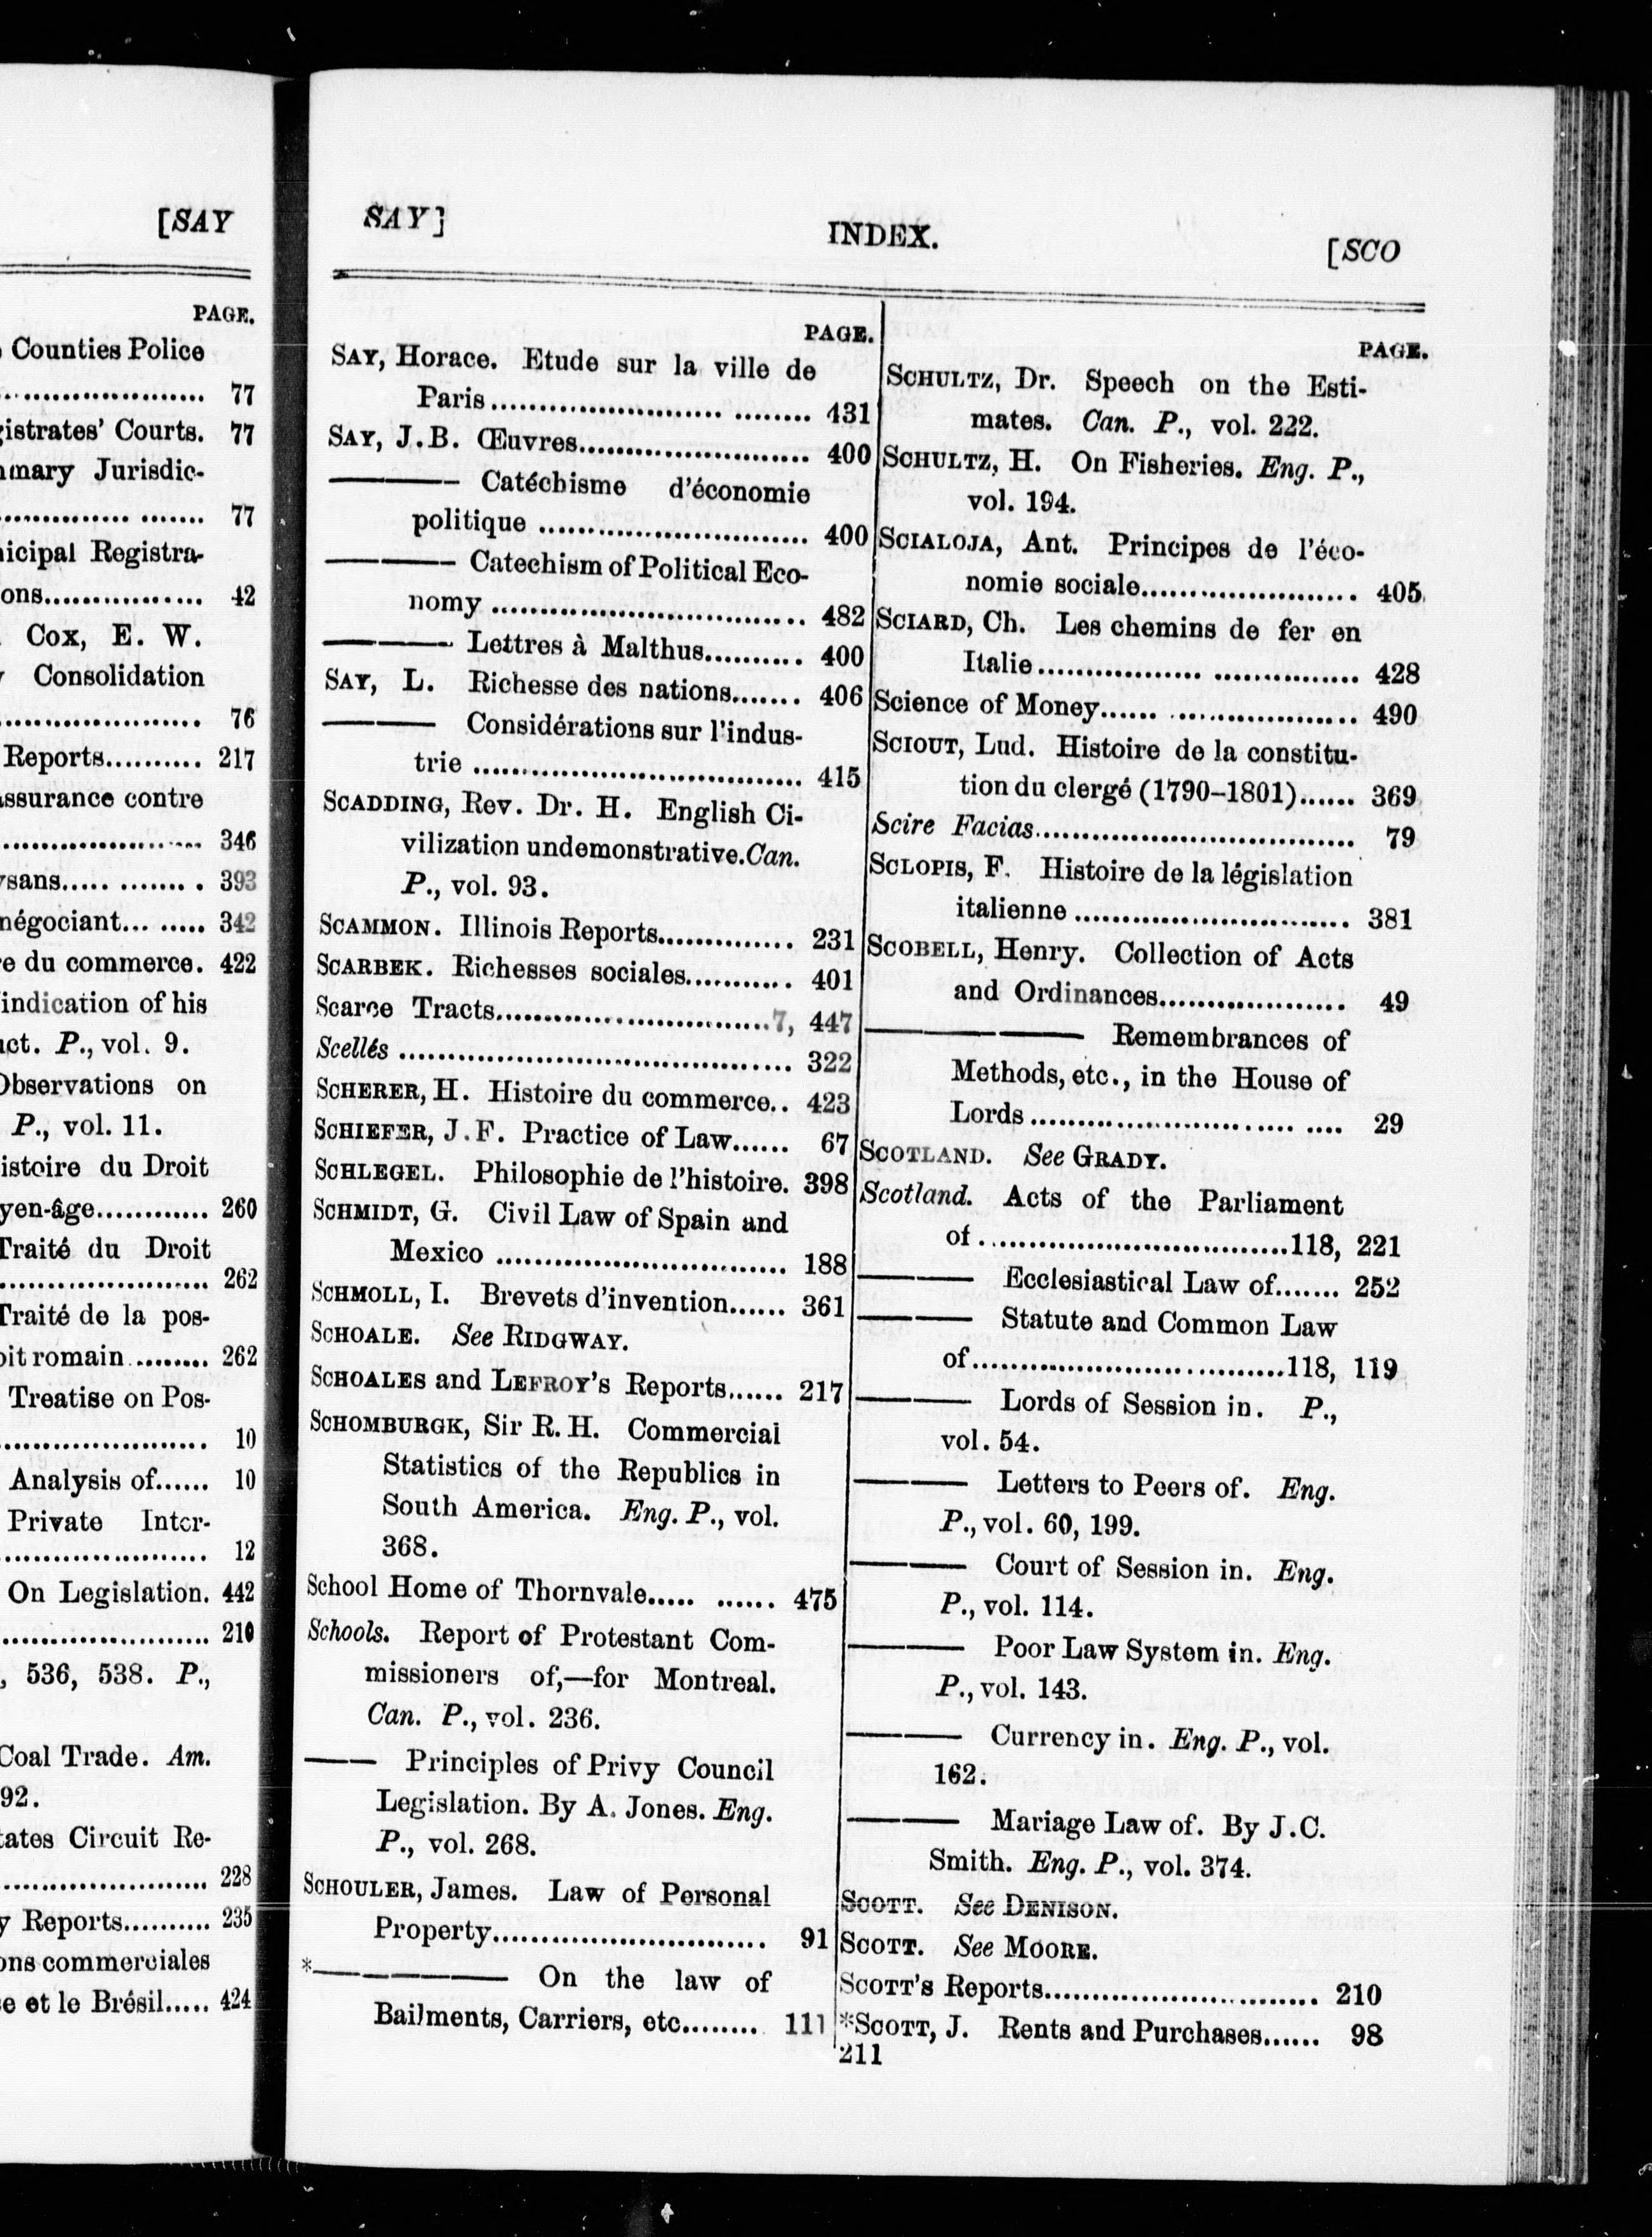 [SAY
PAGE.
Counties Police
.................... 77
gistrates' Courts. 77
mary Jurisdic-
.................... 77
icipal Registra-
ons................ 42
Cox, E. W.
Consolidation
.................... 76
Reports.......... 217
assurance contre
.................... 346
ysans............. 393
négociant... ..... 342
e du commerce. 422
indication of his
ct. P., vol. 9.
Observations on
P., vol. 11.
istoire du Droit
yen-âge............ 260
Traité du Droit
.................... 262
Traité de la pos-
oit romain ......... 262
Treatise on Pos-
.................... 10
Analysis of...... 10
Private Inter-
.................... 12
On Legislation. 442
.................... 210
, 536, 538. P.,
Coal Trade. Am.
92.
tates Circuit Re-
.................... 228
y Reports.......... 235
ons commerciales
e et le Brésil..... 424
SAY]
INDEX.
[SCO
PAGE.
SAY, Horace. Etude sur la ville de
Paris........................ ........ 431
SAY, J.B. Œuvres........................ 400
———— Catéchisme d'économie
politique ............................ 400
———— Catechism of Political Eco-
nomy ................................. 482
———— Lettres à Malthus.......... 400
SAY, L. Richesse des nations....... 406
———— Considérations sur l'indus-
trie ................................... 415
SCADDING, Rev. Dr. H. English Ci-
vilization undemonstrative. Can.
P., vol. 93.
SCAMMON. Illinois Reports.............. 231
SCARBEK. Richesses sociales........... 401
Scarce Tracts.............................7, 447
Scellés ......................................... 322
SCHERER, H. Histoire du commerce.. 423
SCHIEFER, J.F. Practice of Law...... 67
SCHLEGEL. Philosophie de l'histoire. 398
SCHMIDT, G. Civil Law of Spain and
Mexico .............................. 188
SCHMOLL, I. Brevets d'invention...... 361
SCHOALE. See RIDGWAY.
SCHOALES and LEFROY's Reports...... 217
SCHOMBURGK, Sir R. H. Commercial
Statistics of the Republics in
South America. Eng. P., vol.
368.
School Home of Thornvale..... ...... 475
Schools. Report of Protestant Com-
missioners of,—for Montreal.
Can. P., vol. 236.
—— Principles of Privy Council
Legislation. By A. Jones. Eng.
P., vol. 268.
SCHOULER, James. Law of Personal
Property............................ 91
*————— On the law of
Bailments, Carriers, etc........ 111
PAGE.
SCHULTZ, Dr. Speech on the Esti-
mates. Can. P., vol. 222.
SCHULTZ, H. On Fisheries. Eng. P.,
vol. 194.
SCIALOJA, Ant. Principes de l'éco-
nomie sociale...................... 405
SCIARD, Ch. Les chemins de fer en
Italie................. ............... 428
Science of Money...... .................... 490
SCIOUT, Lud. Histoire de la constitu-
tion du clergé (1790-1801)...... 369
Scire Facias................................. 79
SCLOPIS, F. Histoire de la législation
italienne ............................ 381
SCOBELL, Henry. Collection of Acts
and Ordinances................... 49
—————— Remembrances of
Methods, etc., in the House of
Lords ........................... .... 29
SCOTLAND. See GRADY.
Scotland. Acts of the Parliament
of ................................118, 221
——— Ecclesiastical Law of....... 252
——— Statute and Common Law
of................................118, 119
——— Lords of Session in. P.,
vol. 54.
——— Letters to Peers of. Eng.
P., vol. 60, 199.
——— Court of Session in. Eng.
P., vol. 114.
——— Poor Law System in. Eng.
P., vol. 143.
——— Currency in. Eng. P., vol.
162.
——— Mariage Law of. By J.C.
Smith. Eng. P., vol. 374.
SCOTT. See DENISON.
SCOTT. See MOORE.
SCOTT's Reports............................ 210
*SCOTT, J. Rents and Purchases...... 98
211